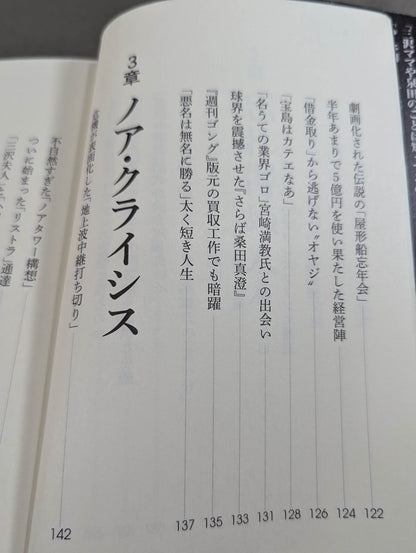 劇画化された伝説の「屋形船忘年会」 122
半年あまりで5億円を使い果たした経営陣 124
「借金取り」から逃げない〝オヤジ〟 126
「宝島はカテエなあ」 128
「名うての業界ゴロ」宮崎満教氏との出会い 131
球界を震撼させた『さらば桑田真澄』 133
『週刊ゴング』版元の買収工作でも暗躍 135
「悪名は無名に勝る」太く短き人生 137
3章 ノア・クライシス
化した「地上波中継打ち切り」 142
不自然すぎた「ノアタワー構想」
ついに始まった「リストラ」通達
「三沢夫人